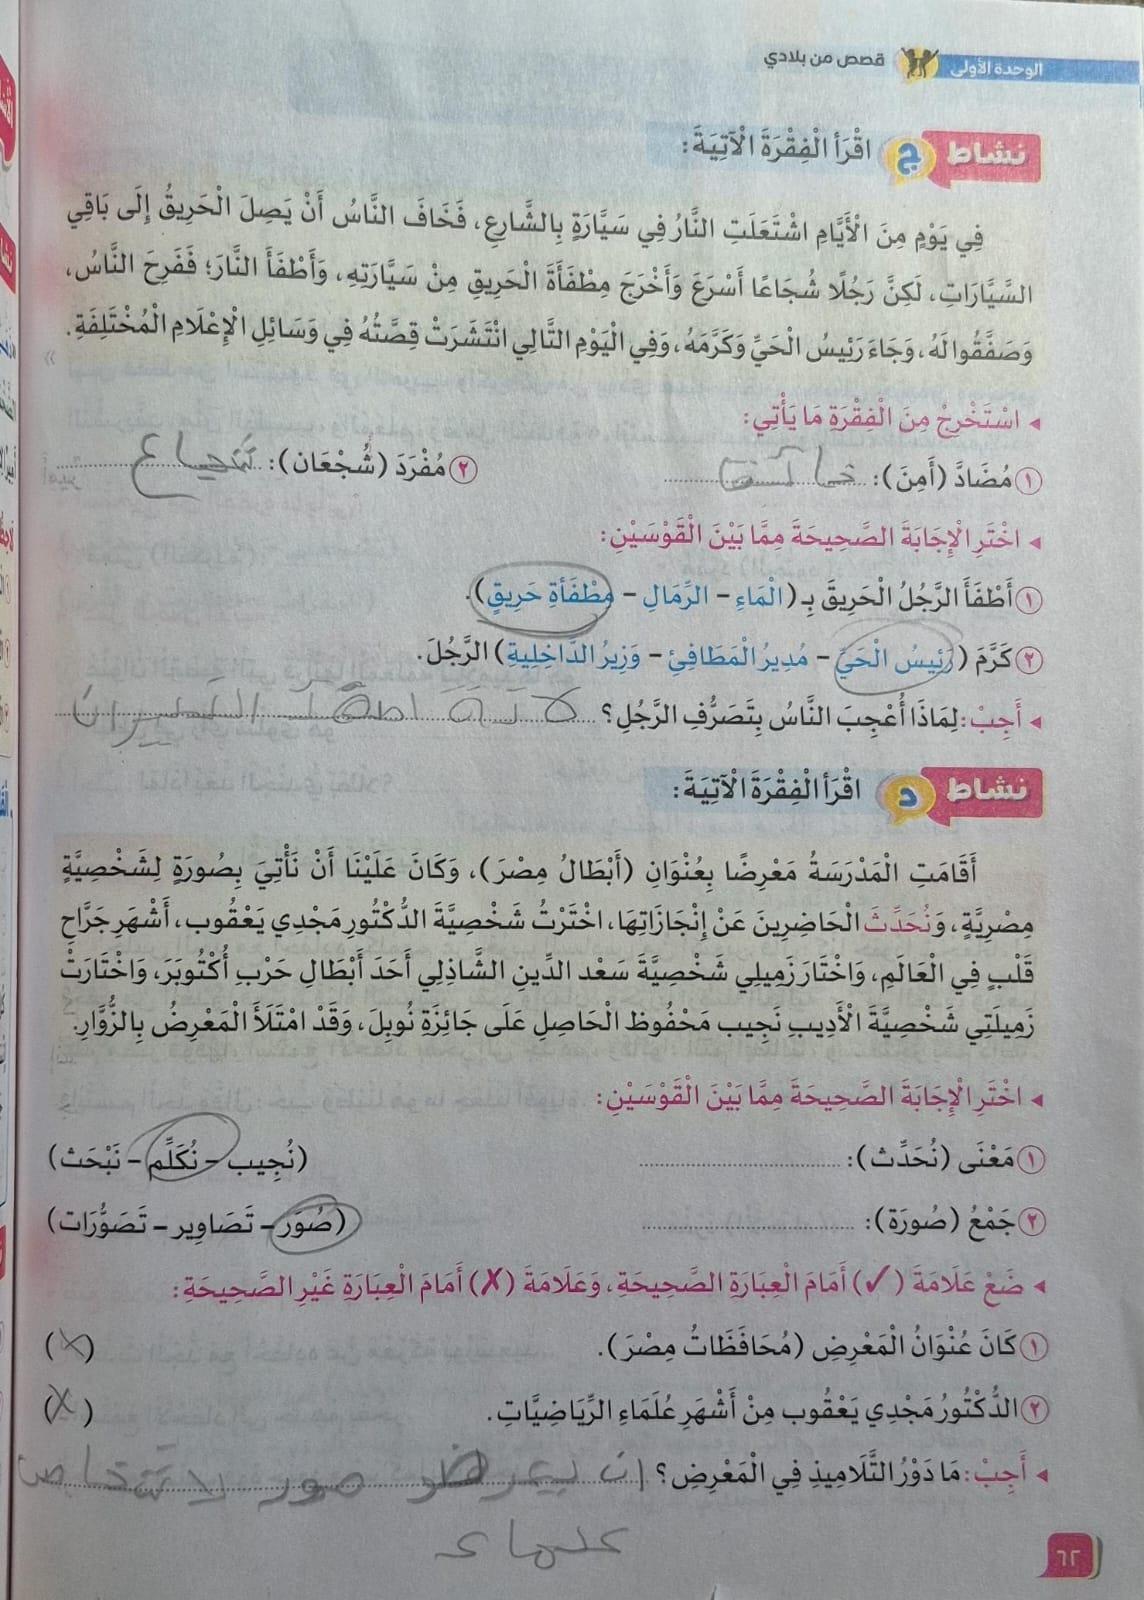 الوحدة الأولى قصص من بلادي
نشاط ج اقْرَأ الْفِقْرَةَ الْآتِيَةَ:
فِي يَوْمٍ مِنَ الْأَيَّامِ اشْتَعَلَتِ النَّارُ فِي سَيَّارَةٍ بِالشَّارِعِ، فَخَافَ النَّاسُ أَنْ يَصِلَ الْحَرِيقُ إِلَى بَاقِي
السَّيَّارَاتِ، لَكِنَّ رَجُلًا شُجَاعًا أَسْرَعَ وَأَخْرَجَ مِطْفَأَةَ الْحَرِيقِ مِنْ سَيَّارَتِهِ، وَأَطْفَأَ النَّارَ؛ فَفَرِحَ النَّاسُ،
وَصَفَّقُوا لَهُ، وَجَاءَ رَئِيسُ الْحَيِّ وَكَرَّمَهُ، وَفِي الْيَوْمِ التَّالِي انْتَشَرَتْ قِصَّتُهُ فِي وَسَائِلِ الْإِعْلَامِ الْمُخْتَلِفَةِ.
◂ اسْتَخْرِجْ مِنَ الْفِقْرَةِ مَا يَأْتِي:
١ مُضَادَّ (أَمِنَ): ٢ مُفْرَدَ (شُجْعَان): شجاع
◂ اخْتَرِ الْإِجَابَةَ الصَّحِيحَةَ مِمَّا بَيْنَ الْقَوْسَيْنِ:
١ أَطْفَأَ الرَّجُلُ الْحَرِيقَ بِـ (الْمَاءِ - الرِّمَالِ - مِطْفَأةِ حَرِيقٍ).
٢ كَرَّمَ (رَئِيسُ الْحَيِّ - مُدِيرُ الْمَطَافِئِ - وَزِيرُ الدَّاخِلِيةِ) الرَّجُلَ.
◂ أَجِبْ: لِمَاذَا أُعْجِبَ النَّاسُ بِتَصَرُّفِ الرَّجُلِ؟
نشاط د اقْرَأ الْفِقْرَةَ الْآتِيَةَ:
أَقَامَتِ الْمَدْرَسَةُ مَعْرِضًا بِعُنْوَانِ (أَبْطَالُ مِصْرَ)، وَكَانَ عَلَيْنَا أَنْ نَأْتِيَ بِصُورَةٍ لِشَخْصِيَّةٍ
مِصْرِيَّةٍ، وَنُحَدِّثَ الْحَاضِرِينَ عَنْ إِنْجَازَاتِهَا، اخْتَرْتُ شَخْصِيَّةَ الدُّكْتُورِ مَجْدِي يَعْقُوب، أَشْهَرِ جَرَّاحِ
قَلْبٍ فِي الْعَالَمِ، وَاخْتَارَ زَمِيلِي شَخْصِيَّةَ سَعْد الدِّينِ الشَّاذِلِي أَحَدَ أَبْطَالِ حَرْبِ أُكْتُوبَرَ، وَاخْتَارَتْ
زَمِيلَتِي شَخْصِيَّةَ الْأَدِيبِ نَجِيب مَحْفُوظ الْحَاصِلِ عَلَى جَائِزَةِ نُوبِلَ، وَقَدْ امْتَلَأَ الْمَعْرِضُ بِالزُّوَّارِ.
◂ اخْتَرِ الْإِجَابَةَ الصَّحِيحَةَ مِمَّا بَيْنَ الْقَوْسَيْنِ:
١ مَعْنَى (نُحَدِّث): (نُجِيب - نُكَلِّم - نَبْحَث)
٢ جَمْعُ (صُورَة): (صُوَر - تَصَاوِير - تَصَوُّرَات)
◂ ضَعْ عَلَامَةَ (✓) أَمَامَ الْعِبَارَةِ الصَّحِيحَةِ، وَعَلَامَةَ (✗) أَمَامَ الْعِبَارَةِ غَيْرِ الصَّحِيحَةِ:
١ كَانَ عُنْوَانُ الْمَعْرِضِ (مُحَافَظَاتُ مِصْرَ). (X)
٢ الدُّكْتُورُ مَجْدِي يَعْقُوب مِنْ أَشْهَرِ عُلَمَاءِ الرِّيَاضِيَّاتِ. (X)
◂ أَجِبْ: مَا دَوْرُ التَّلَامِيذِ فِي الْمَعْرِضِ؟ ان يعرضو صور لاشخاص
علماء
٦٢